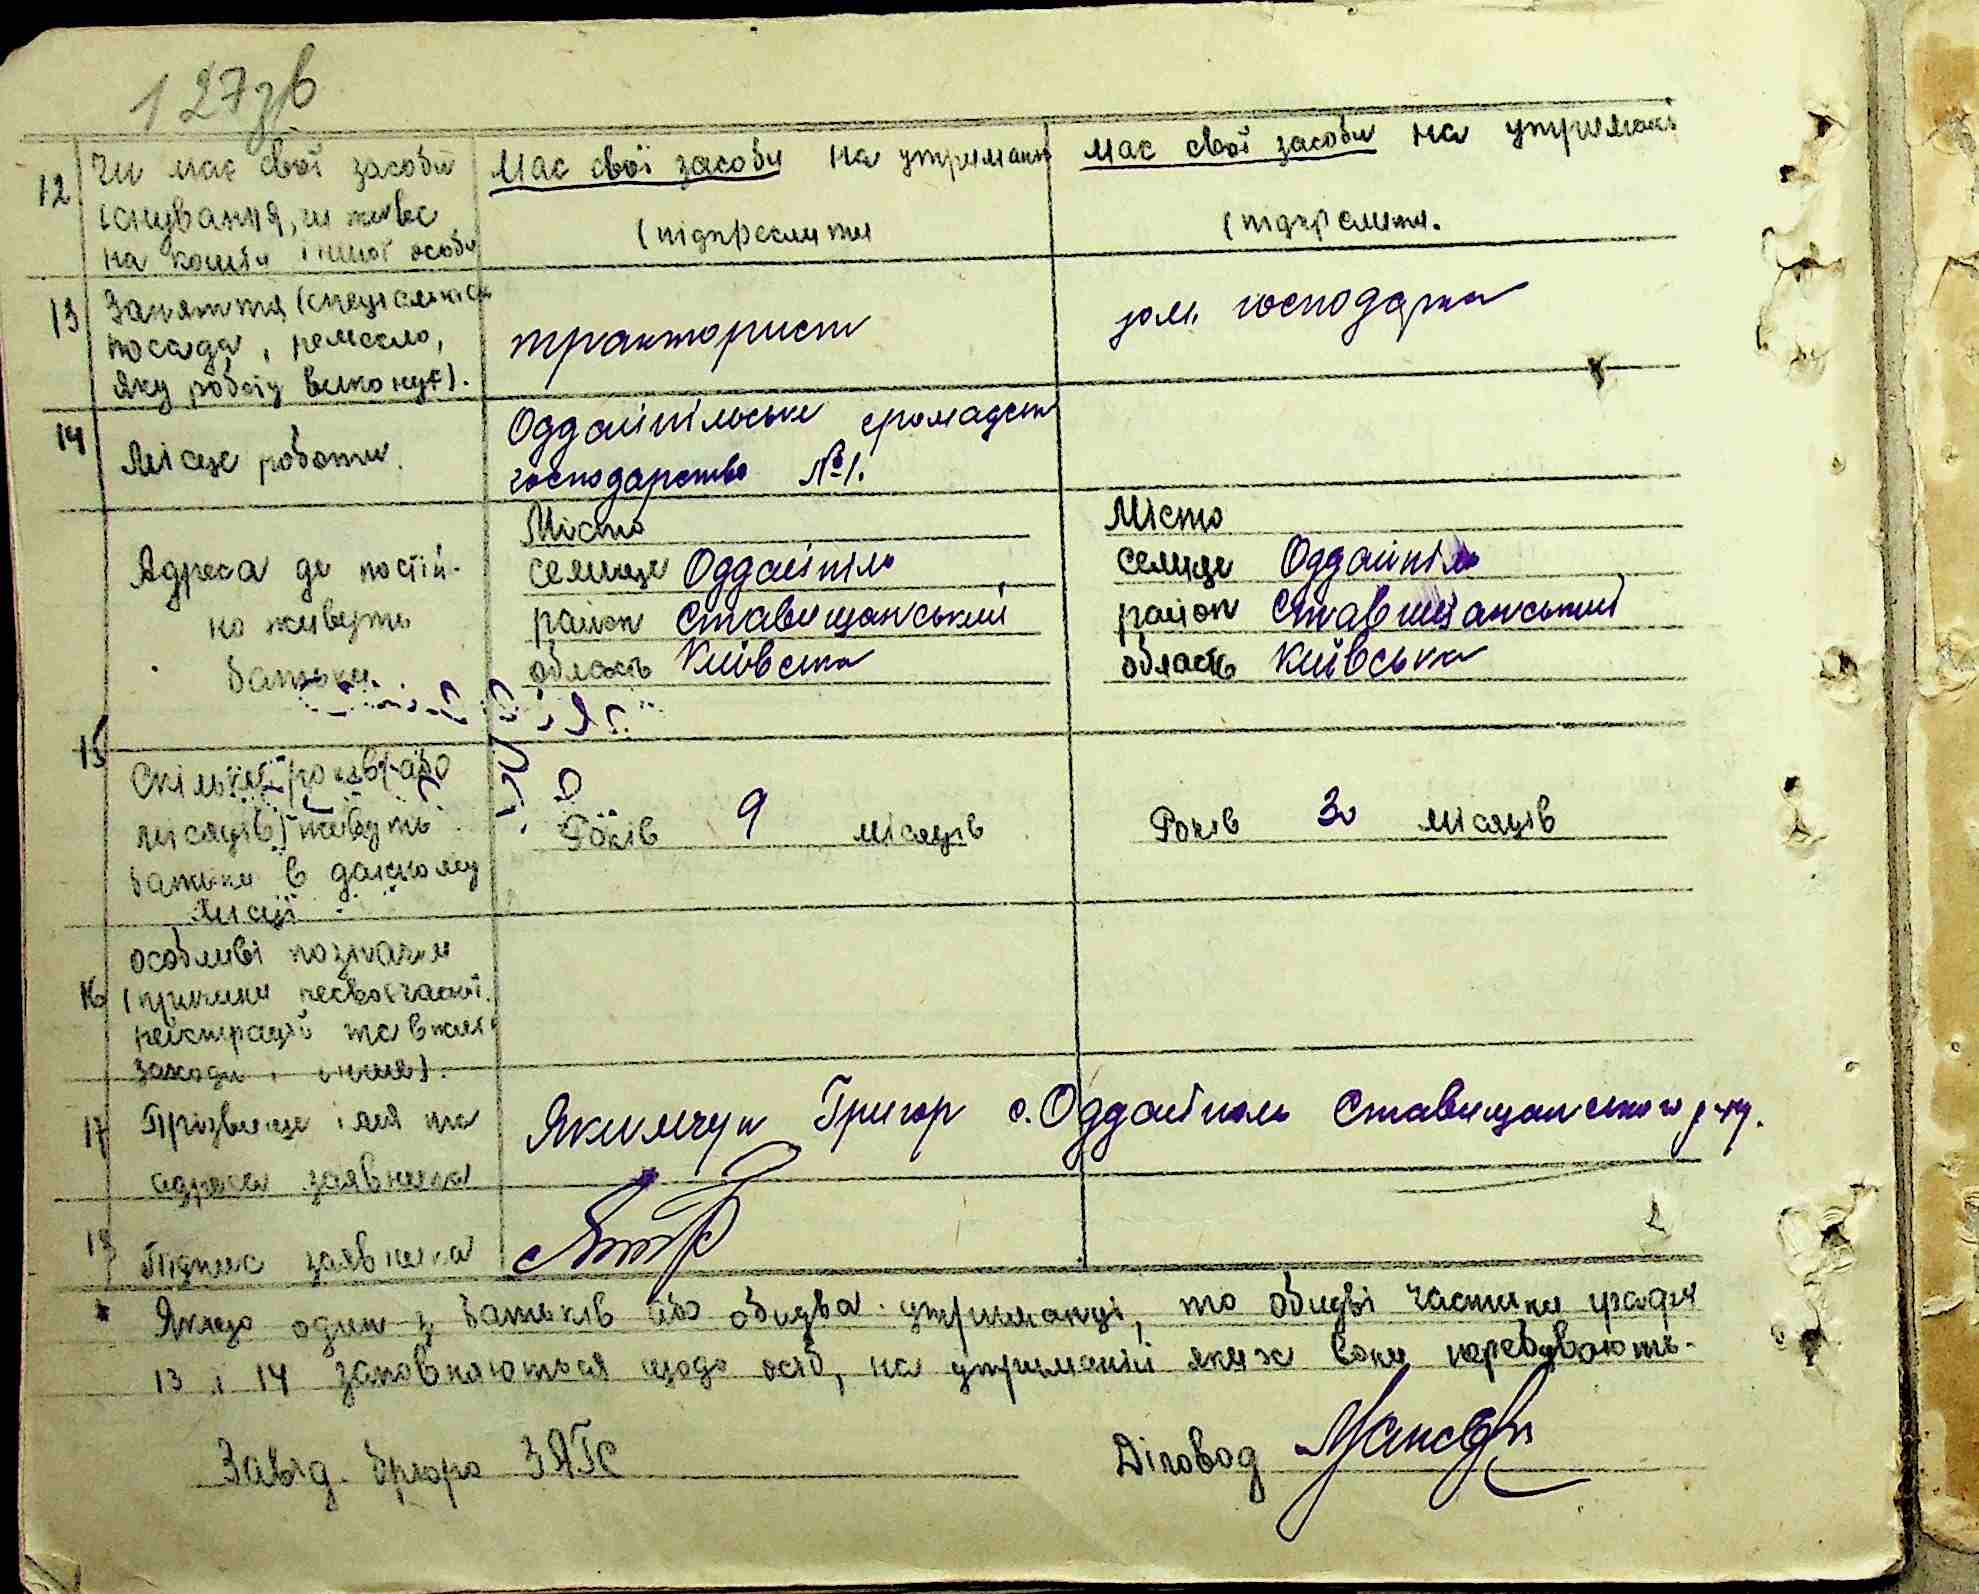 127зв
12 Чи має свої засоби існування, чи живе на кошти іншої особи
Має свої засоби на утриманні
(підкреслити
має свої засоби на утриманні
(підкреслити.
13 Заняття (спеціальність посада, ремесло, яку роботу виконує).
тракторист
дом. господарка
14 Місце роботи.
Оддайпільське громадськ
господарство №1.
Адреса де постій-
но живуть
батьки
Місто
селище Оддайпіль
район Ставищанський
область Київська
Місто
селище Оддайпіль
район Ставищанський
область Київська
15 Скільки років або
місяців живуть
батьки в даному
місці
Років 9 місяців
Років 30 місяців
16 особливі познаки
(причини несвоєчасної
реєстрації та вжиті
заходи і інше).
17 Прізвище ім'я та
адреса заявника
Якимчук Григор с. Оддайполь Ставищанського р-ну.
18 Підпис заявника
Якщо один з батьків або обидва утриманці, то обидві частини графи
13 і 14 заповняються щодо осіб, на утриманні яких вони перебувають.
Завід. бюро ЗАГС
Діловод